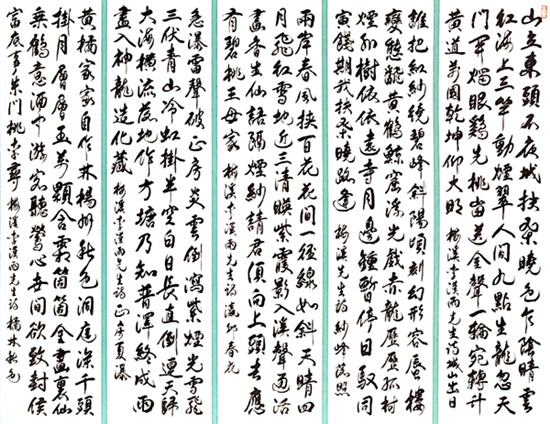 山立東頭不夜城扶桑曉色乍陰晴雲
紅海上三竿動煙翠人間九點生龍忽天
門開燭眼鷄先桃峀送金聲一輪宛轉升
黃道萬國乾坤仰大明梅溪李漢雨先生詩城山出日
誰把紅紗繞碧峰斜陽頃刻幻形容蜃樓
變態凝黃鶴鯨窟浮光戲赤龍歷歷孤村
煙外樹依依遠寺月邊鍾暫停日馭同
寅餞期我扶桑曉路逢梅溪先生詩紗峰落照
兩岸春風挾百花花間一徑線如斜天晴四
月飛紅雪地近三清暎紫霞影入溪聲通活
畫香生仙語隔煙紗請君須向上頭去應
有碧桃王母家梅溪李漢雨先生詩瀛邱春花
急瀑雷聲破正房炎雲倒瀉紫煙光雪飛
三伏青山冷虹掛半空白日長直倒運天歸
大海橫流落地作方塘乃知普澤終成雨
盡入神龍造化藏梅溪李漢雨先生詩正房夏瀑
黃橘家家自作林楊州秋色洞庭深千頭
掛月層層玉萬顆含霜箇箇金畫裏仙
乘鶴意酒中游客聽鶯心世間欲致封侯
富底事東門桃李尋梅溪李漢雨先生詩橘林秋色